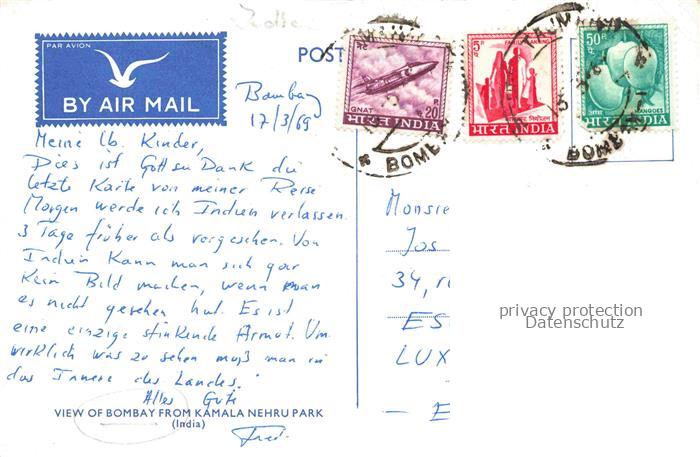 PAR AVION
BY AIR MAIL
POST
Bombay
17/3/69
Meine lb. Kinder,
Dies ist Gott sei Dank die
letzte Karte von meiner Reise
Morgen werde ich Indien verlassen
3 Tage früher als vorgesehen. Von
Indien kann man sich gar
kein Bild machen, wenn man
es nicht gesehen hat. Es ist
eine einzige stinkende Armut. Um
wirklich was zu sehen muß man in
das Innere des Landes.
Alles Gute
Fred.
VIEW OF BOMBAY FROM KAMALA NEHRU PARK
(India)
GNAT
20
भारत INDIA
5
FAMILY PLANNING
भारत INDIA
50
MANGOES
भारत INDIA
BOMBAY
TAJMAHAL
BOMBAY
Monsie
Jos
34, r
ES
LUX
- E
privacy protection
Datenschutz